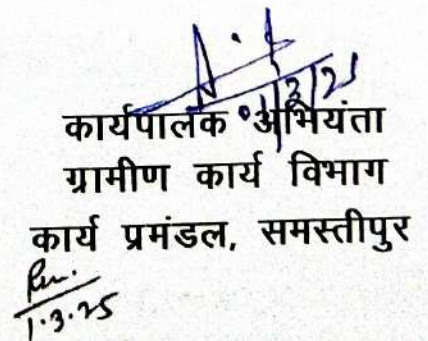 कार्यपालक अभियंता
ग्रामीण कार्य विभाग
कार्य प्रमंडल, समस्तीपुर
1.3.25